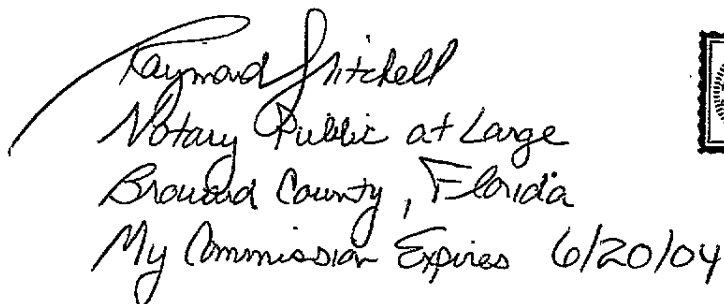 Raymond Mitchell
Notary Public at Large
Broward County, Florida
My Commission Expires 6/20/04